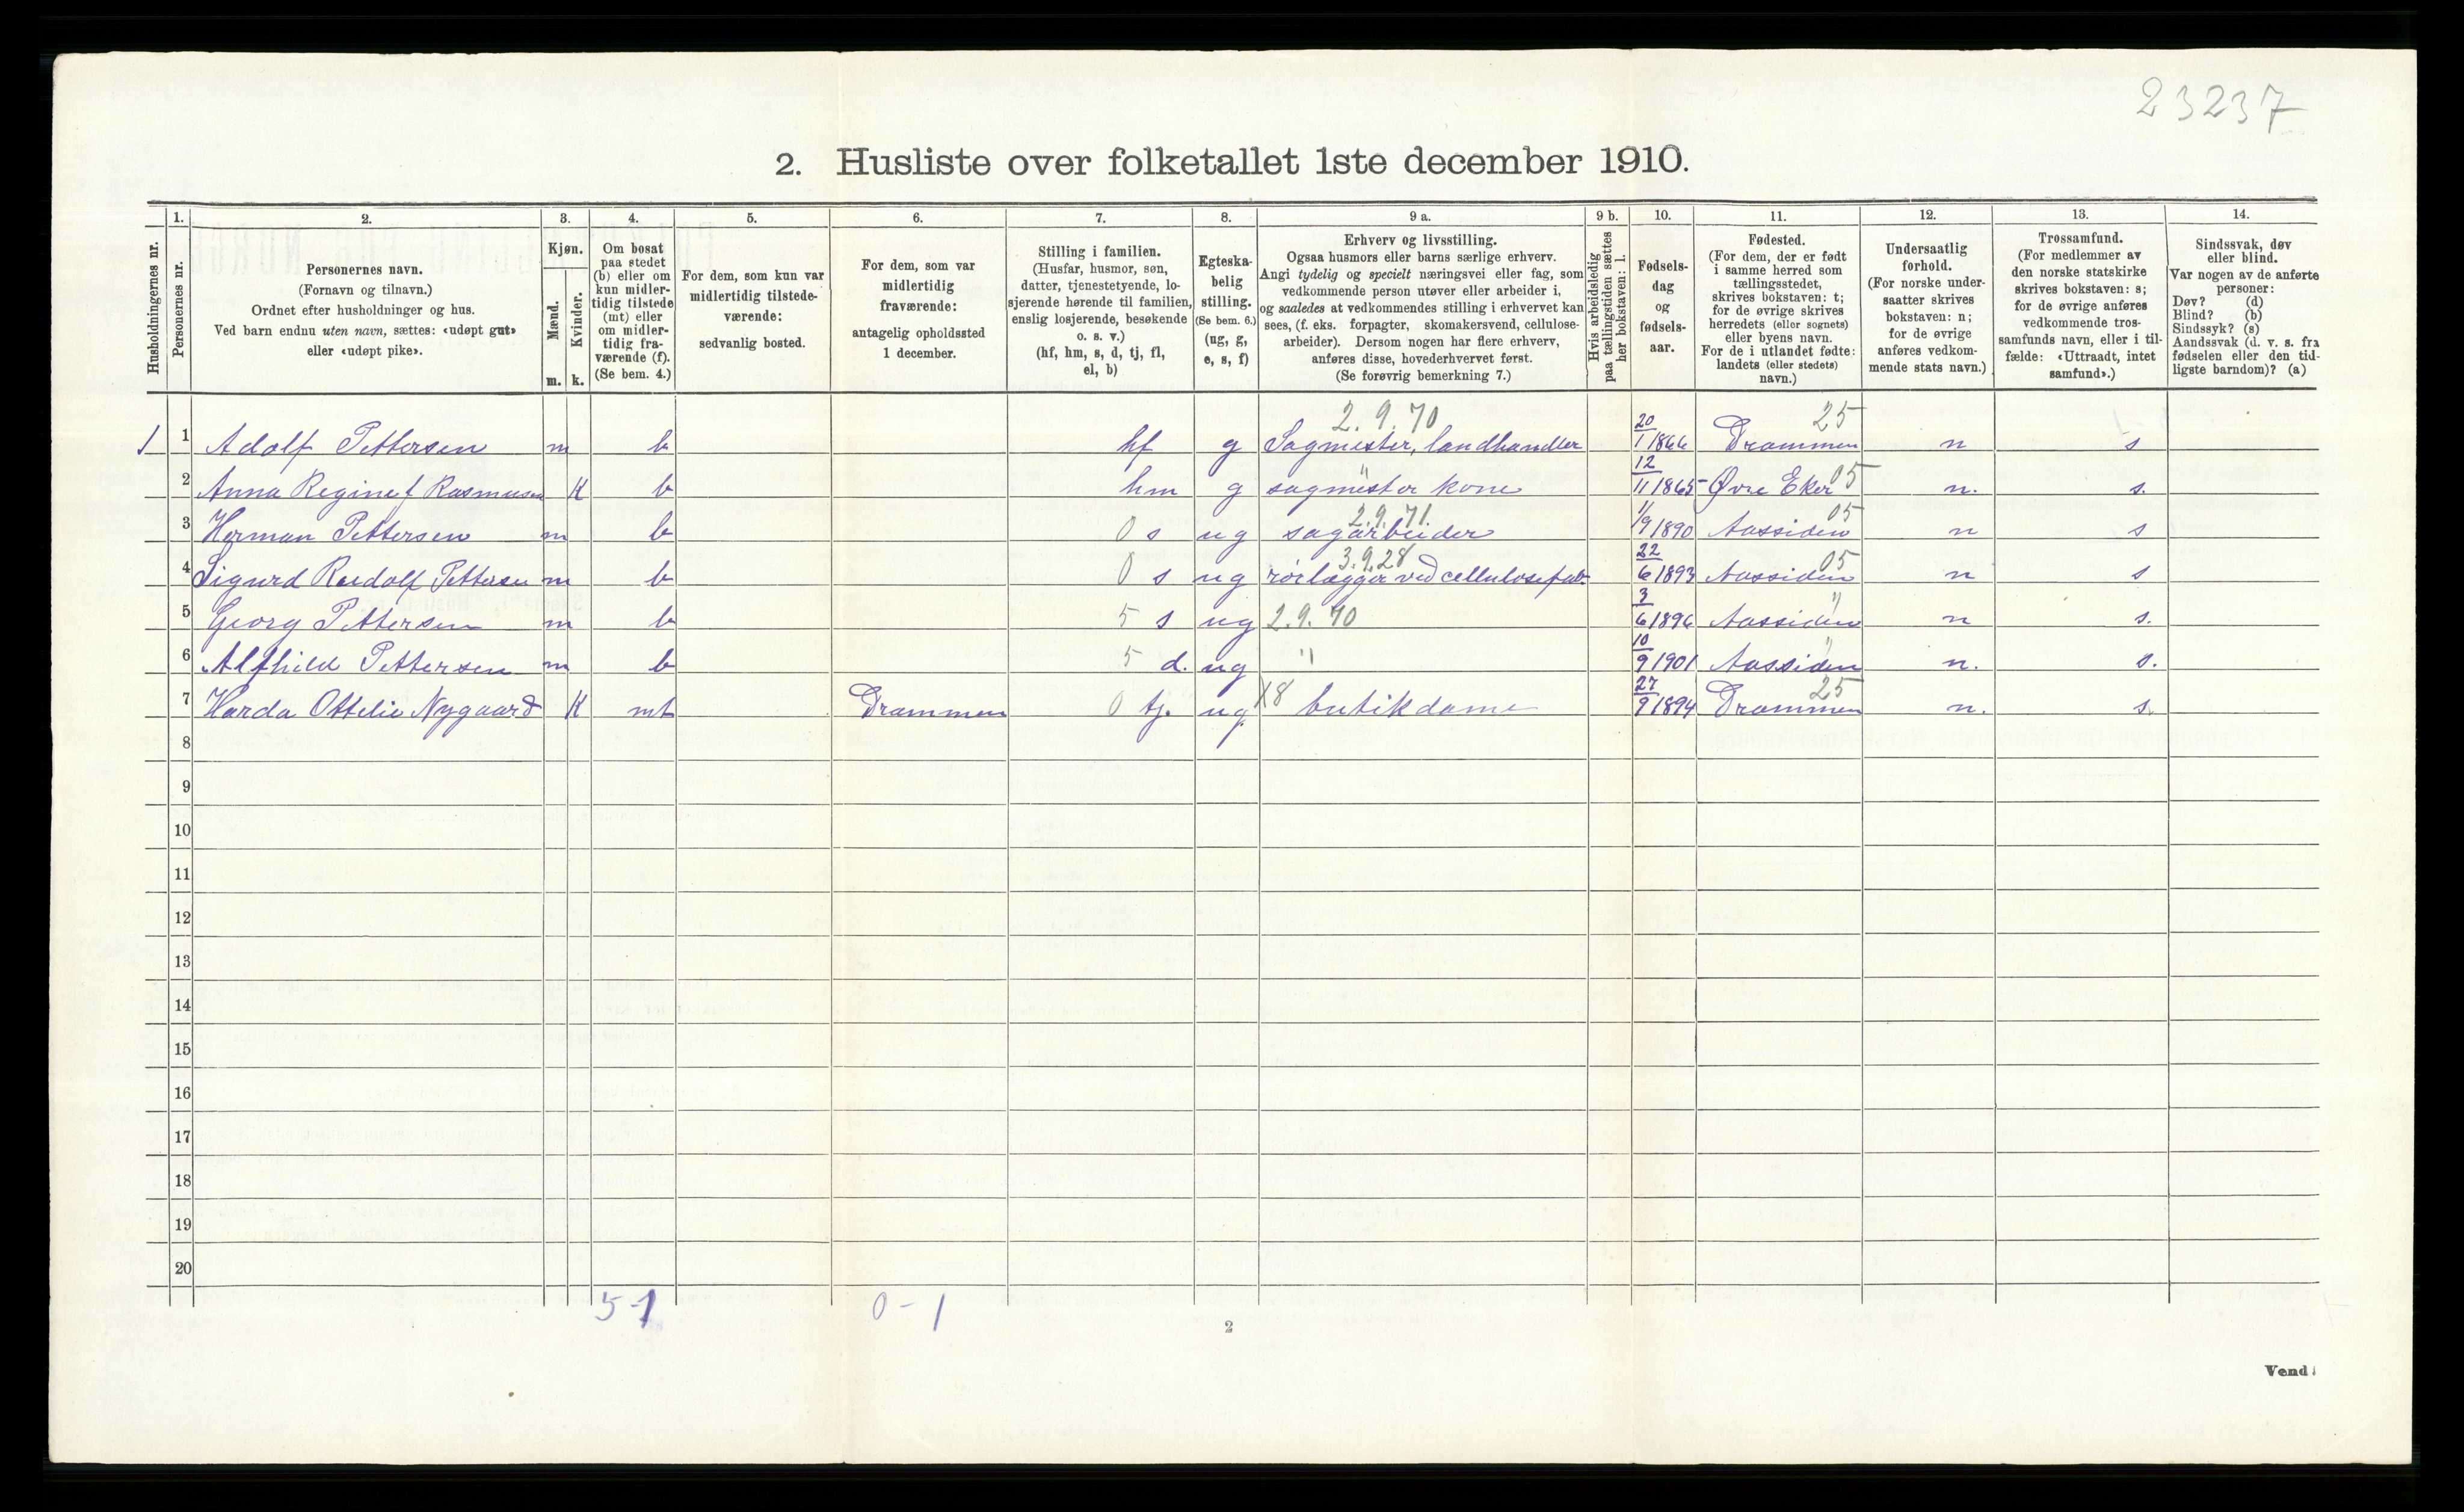 23237
2. Husliste over folketallet 1ste december 1910.
Husholdningernes nr.
1.
Personernes nr.
2.
Personernes navn.
(Fornavn og tilnavn.)
Ordnet efter husholdninger og hus.
Ved barn endnu uten navn, sættes: «udøpt gut»
eller «udøpt pike».
3.
Kjøn.
Mænd.
Kvinder.
m. k.
4.
Om bosat
paa stedet
(b) eller om
kun midler-
tidig tilstede
(mt) eller
om midler-
tidig fra-
værende (f).
(Se bem. 4.)
5.
For dem, som kun var
midlertidig tilstede-
værende:
sedvanlig bosted.
6.
For dem, som var
midlertidig
fraværende:
antagelig opholdssted
1 december.
7.
Stilling i familien.
(Husfar, husmor, søn,
datter, tjenestetyende, lo-
sjerende hørende til familien,
enslig losjerende, besøkende
o. s. v.)
(hf, hm, s, d, tj, fl,
el, b)
8.
Egteska-
belig
stilling.
(Se bem. 6.)
(ug, g,
e, s, f)
9 a.
Erhverv og livsstilling.
Ogsaa husmors eller barns særlige erhverv.
Angi tydelig og specielt næringsvei eller fag, som
vedkommende person utøver eller arbeider i,
og saaledes at vedkommendes stilling i erhvervet kan
sees, (f. eks. forpagter, skomakersvend, cellulose-
arbeider). Dersom nogen har flere erhverv,
anføres disse, hovederhvervet først.
(Se forøvrig bemerkning 7.)
9 b.
Hvis arbeidsledig
paa tællingstiden sættes
her bokstaven: l.
10.
Fødsels-
dag
og
fødsels-
aar.
11.
Fødested.
(For dem, der er født
i samme herred som
tællingsstedet,
skrives bokstaven: t;
for de øvrige skrives
herredets (eller sognets)
eller byens navn.
For de i utlandet fødte:
landets (eller stedets)
navn.)
12.
Undersaatlig
forhold.
(For norske under-
saatter skrives
bokstaven: n;
for de øvrige
anføres vedkom-
mende stats navn.)
13.
Trossamfund.
(For medlemmer av
den norske statskirke
skrives bokstaven: s;
for de øvrige anføres
vedkommende tros-
samfunds navn, eller i til-
fælde: «Uttraadt, intet
samfund».)
14.
Sindssvak, døv
eller blind.
Var nogen av de anførte
personer:
Døv? (d)
Blind? (b)
Sindssyk? (s)
Aandssvak (d. v. s. fra
fødselen eller den tid-
ligste barndom)? (a)
2.9.70 25
1 1 Adolf Pettersen m b hf g Sagmester, landhandler 20/1 1866 Drammen n s
" 05
2 Anna Regine f Rasmussen K b hm g sagmester kone 12/11 1865 Øvre Eker n. s.
2.9.71. 05
3 Herman Pettersen m b 0 s ug sagarbeider 1/9 1890 Aassiden n s
3.9.28 05
4 Sigurd Rudolf Pettersen m b 0 s ug rørlægger ved cellulosefab. 22/6 1893 Aassiden n s
"
5 Georg Pettersen m b 5 s ug 2.9.70 3/6 1896 Aassiden n s.
"
6 Alfhild Pettersen m b 5 d. ug " 10/9 1901 Aassiden n. s.
25
7 Harda Ottelie Nygaard K mt Drammen 0 tj. ug X8 butikdame 27/9 1894 Drammen n. s.
8
9
10
11
12
13
14
15
16
17
18
19
20
5-1 0-1
2
Vend!